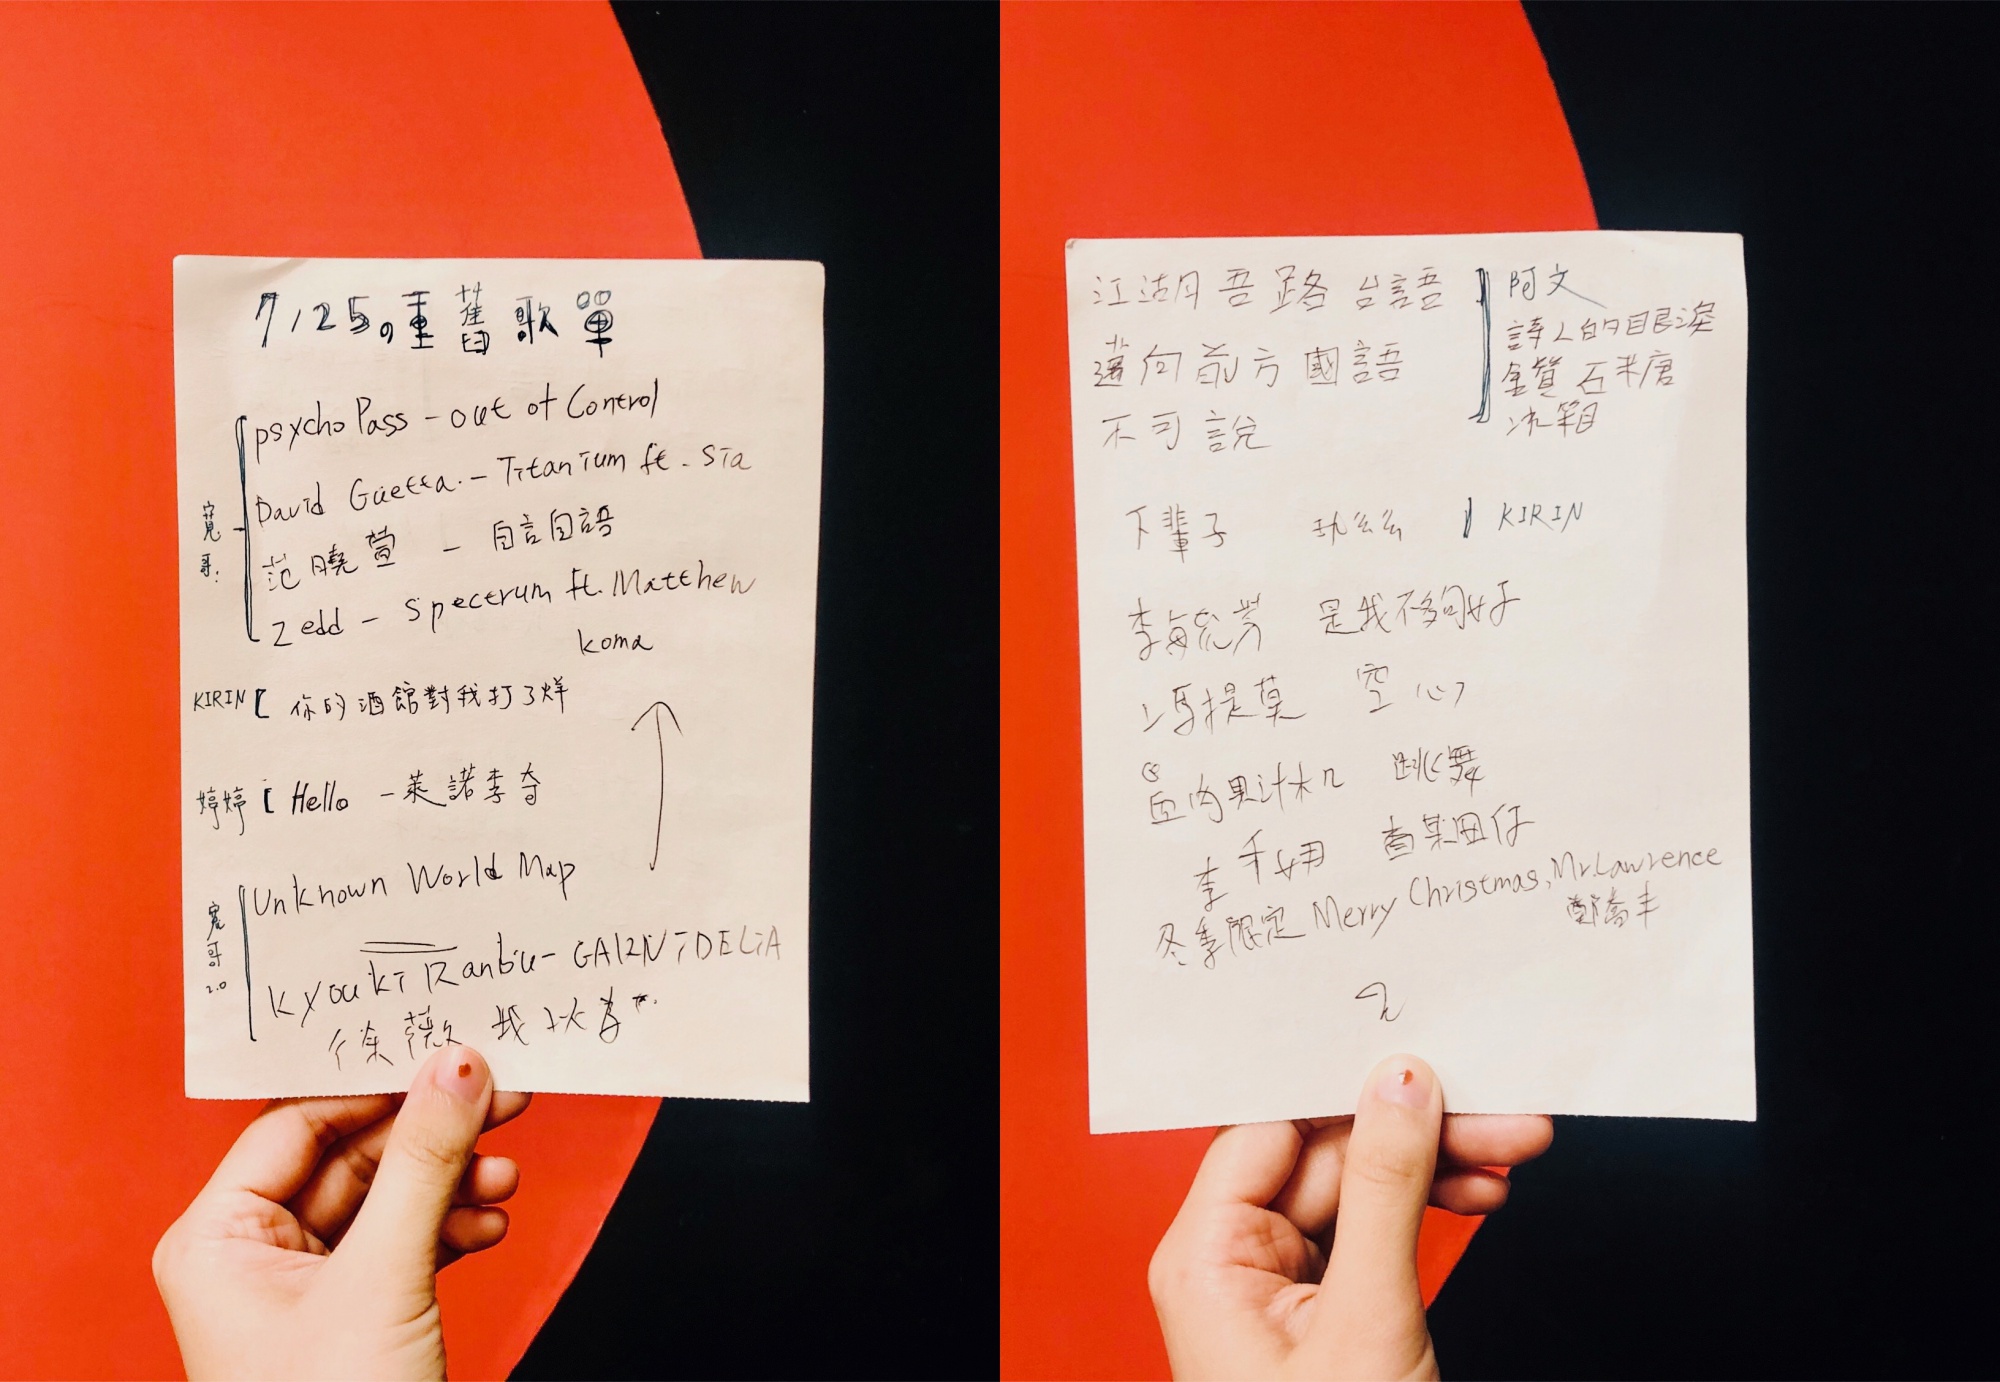 7/25の重舊歌單
寬哥:
psycho Pass - out of Control
David Guetta. - Titanium ft. Sia
范曉萱 - 自言自語
Zedd - Spectrum ft. Matthew
koma
KIRIN [ 你的酒館對我打了烊
婷婷 [ Hello - 萊諾李奇
寬哥2.0
Unknown World Map
Kyouki Ranbu - GARNiDELiA
徐薇 我以為
江湖吾路 台語
邁向前方 國語
不可說
阿文
詩人的眼淚
金質 石米唐
冰箱
下輩子 玖幺幺
KIRIN
李毓芬 是我不夠好
馮提莫 空心
血肉果汁机 跳舞
李千娜 查某囡仔
冬季限定 Merry Christmas, Mr. Lawrence
鄭喬丰